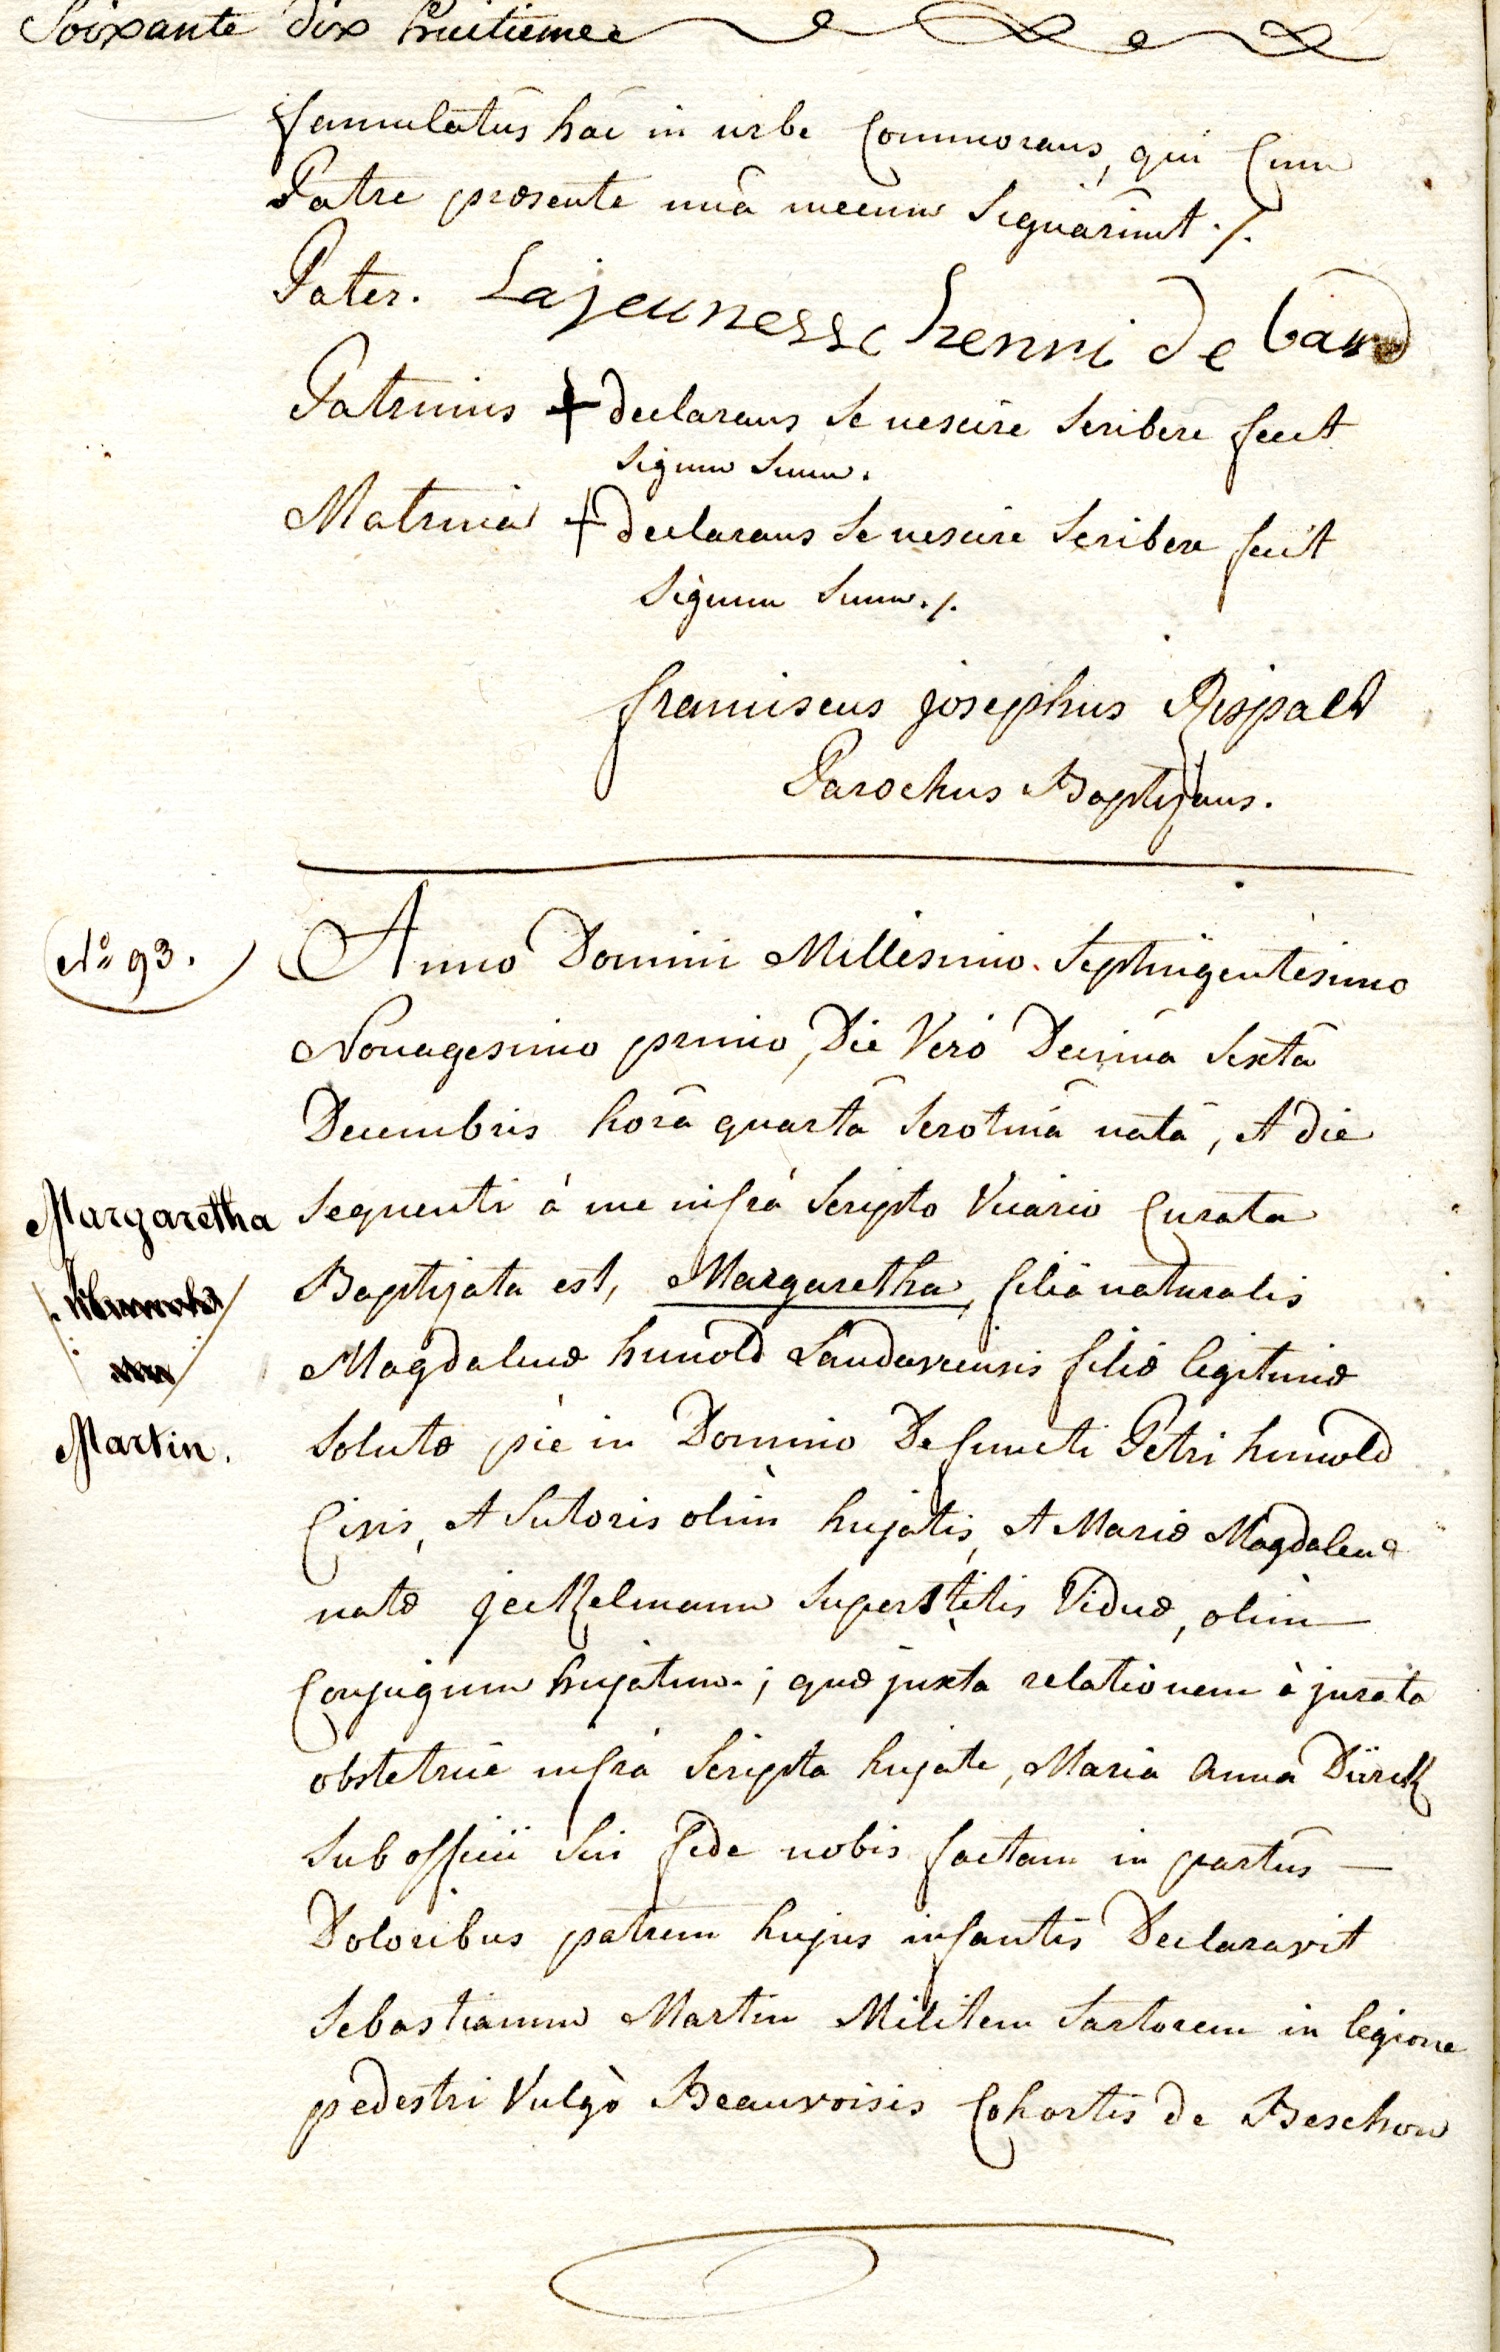 Soixante dix huitieme
famulatûs hâc in urbe Commorans, qui Cum
Patre præsente unâ mecum Signârunt ./.
Pater. Lajeunesse henri de
Patrinus + declarans se nescire scribere fecit
signum suum.
Matrina + declarans se nescire scribere fecit
signum suum ./.
franciscus josephus
Parochus Baptizans.
N° 93.
Anno Domini Millesimo Septingentesimo
Nonagesimo primo, Die Verò Decimâ Sextâ
Decembris horâ quartâ Serotinâ nata, et die
Margaretha
sequenti à me infrà Scripto Vicario Curato
Baptizata est, Margaretha, filia naturalis
Magdalenæ hunold Landaviensis filiæ legitimæ
Martin.
solutæ piè in Domino Defuncti Petri hunold
Civis, et Sutoris olim hujatis, et Mariæ Magdalenæ
natæ jeckelmann Superstitis Viduæ, olim
Conjugum hujatum; quæ juxta relationem à jurata
obstetrice infrà Scripta hujate, Maria Anna Dürck
sub officii sui fide nobis factam in partûs
Doloribus patrem hujus infantis Declaravit
Sebastianum Martin Militem Sartorem in legione
pedestri Vulgò Beauvoisis Cohortis de Beschon